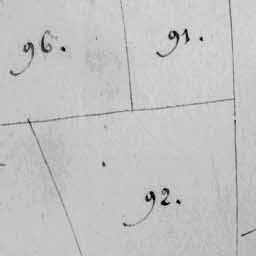 96. 91.
92.